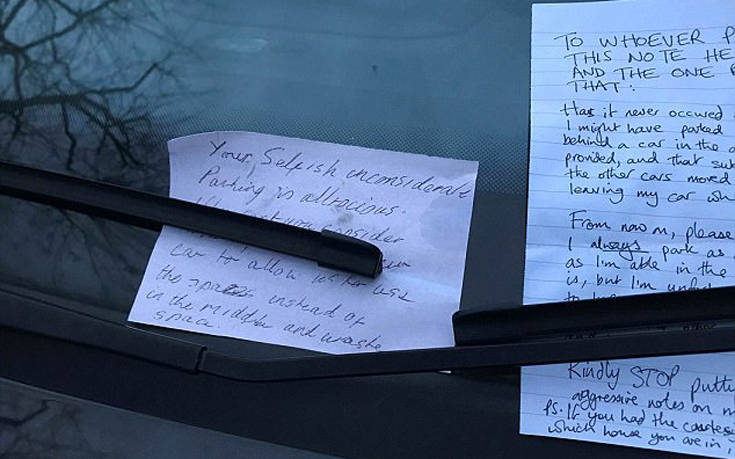 Your Selfish unconsiderate
Parking is attrocious.
consider
car to allow us to use
the space instead of
in the middle and waste
space.
TO WHOEVER
THIS NOTE HE
AND THE ONE
THAT:
Has it never occured
I might have parked
behind a car in the
provided, and that
the other cars moved
leaving my car
From now on, please
I always park as
as I'm able in the
is, but I'm
Kindly STOP putt
aggressive notes on m
PS. If you had the courtes
which house you are in,